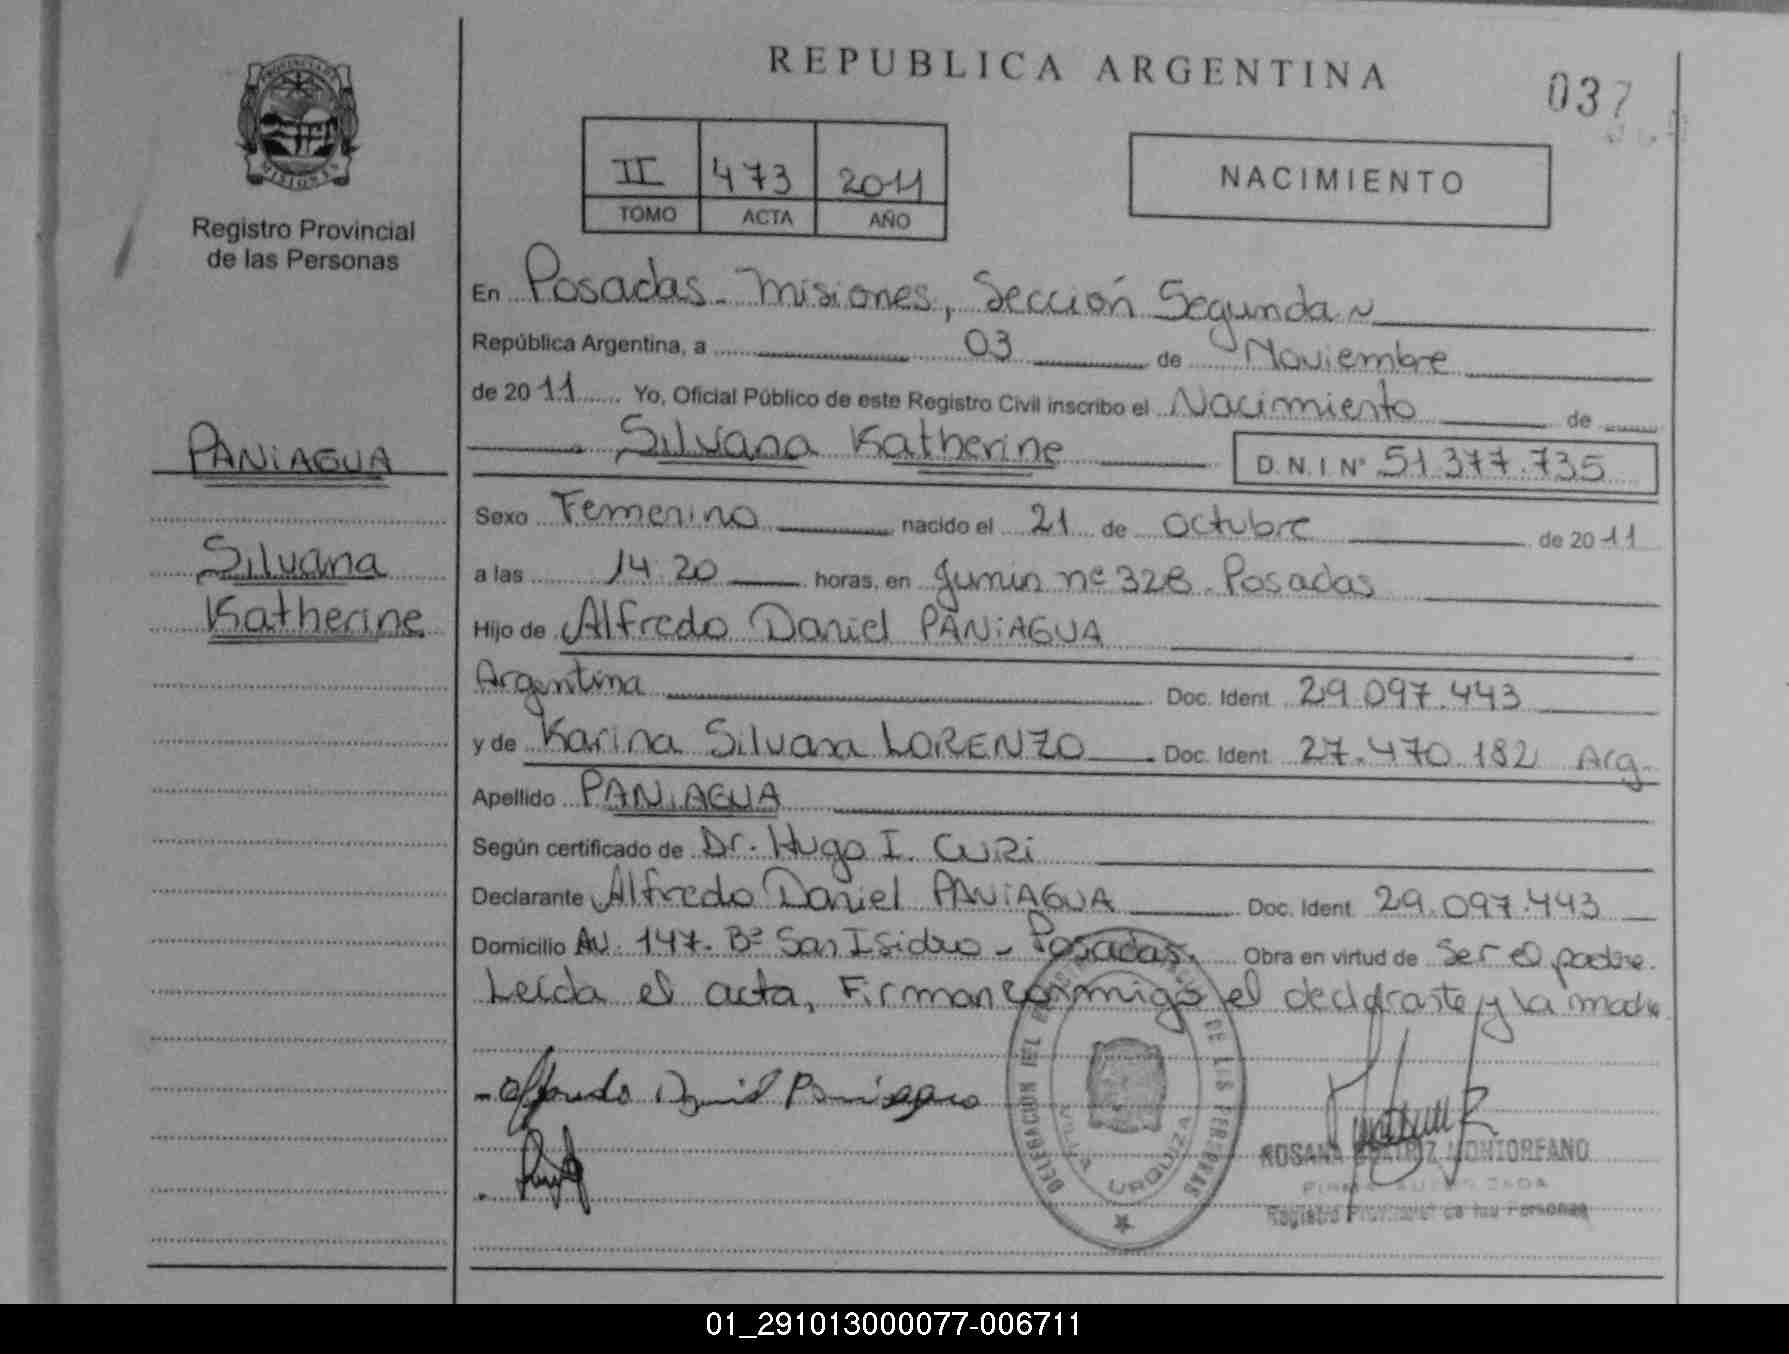 REPUBLICA ARGENTINA
037
PROVINCIA DE
MISIONES
Registro Provincial
de las Personas
II 473 2011
TOMO ACTA AÑO
NACIMIENTO
En Posadas - Misiones, Sección Segunda
República Argentina, a 03 de Noviembre
de 2011 Yo, Oficial Público de este Registro Civil inscribo el Nacimiento de
Silvana Katherine D.N.I Nº 51.377.735
PANiAGUA
Silvana
Katherine
Sexo Femenino nacido el 21 de octubre de 2011
a las 14:20 horas, en Junin nº 328 - Posadas
Hijo de Alfredo Daniel PANiAGUA
Argentina Doc. Ident. 29.097.443
y de Karina Silvana LORENZO Doc. Ident. 27.470.182 Arg.
Apellido PANiAGUA
Según certificado de Dr. Hugo I. CURi
Declarante Alfredo Daniel PANiAGUA Doc. Ident. 29.097.443
Domicilio AV. 147 - Bº San Isidro - Posadas. Obra en virtud de Ser el padre.
Leída el acta, Firman conmigo el declarante y la madre
DELEGACION DEL REGISTRO DE LAS PERSONAS
VILLA URQUIZA
Alfredo Daniel Paniagua
ROSANA BEATRIZ MONTORFANO
FIRMA AUTORIZADA
Registro Provincial de las Personas
01_291013000077-006711